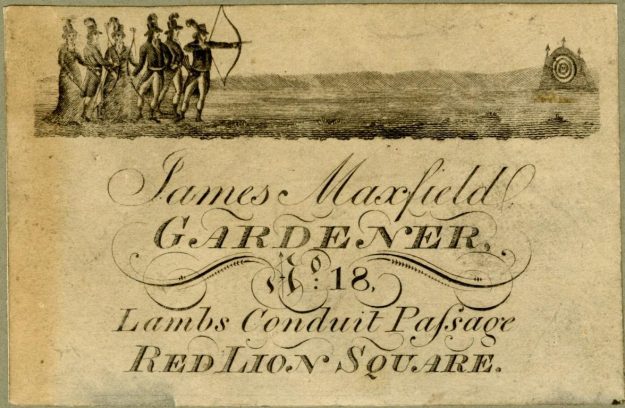 James Maxfield
GARDENER,
No: 18,
Lambs Conduit Paſsage
RED LION SQUARE.